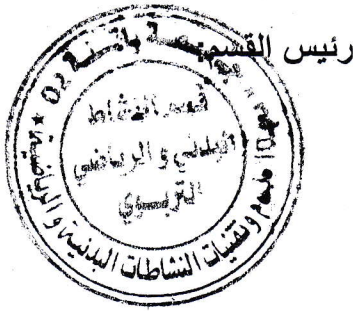 رئيس القسم
قسم النشاط
البدني و الرياضي
التربوي
علوم وتقنيات النشاطات البدنية و الرياضية